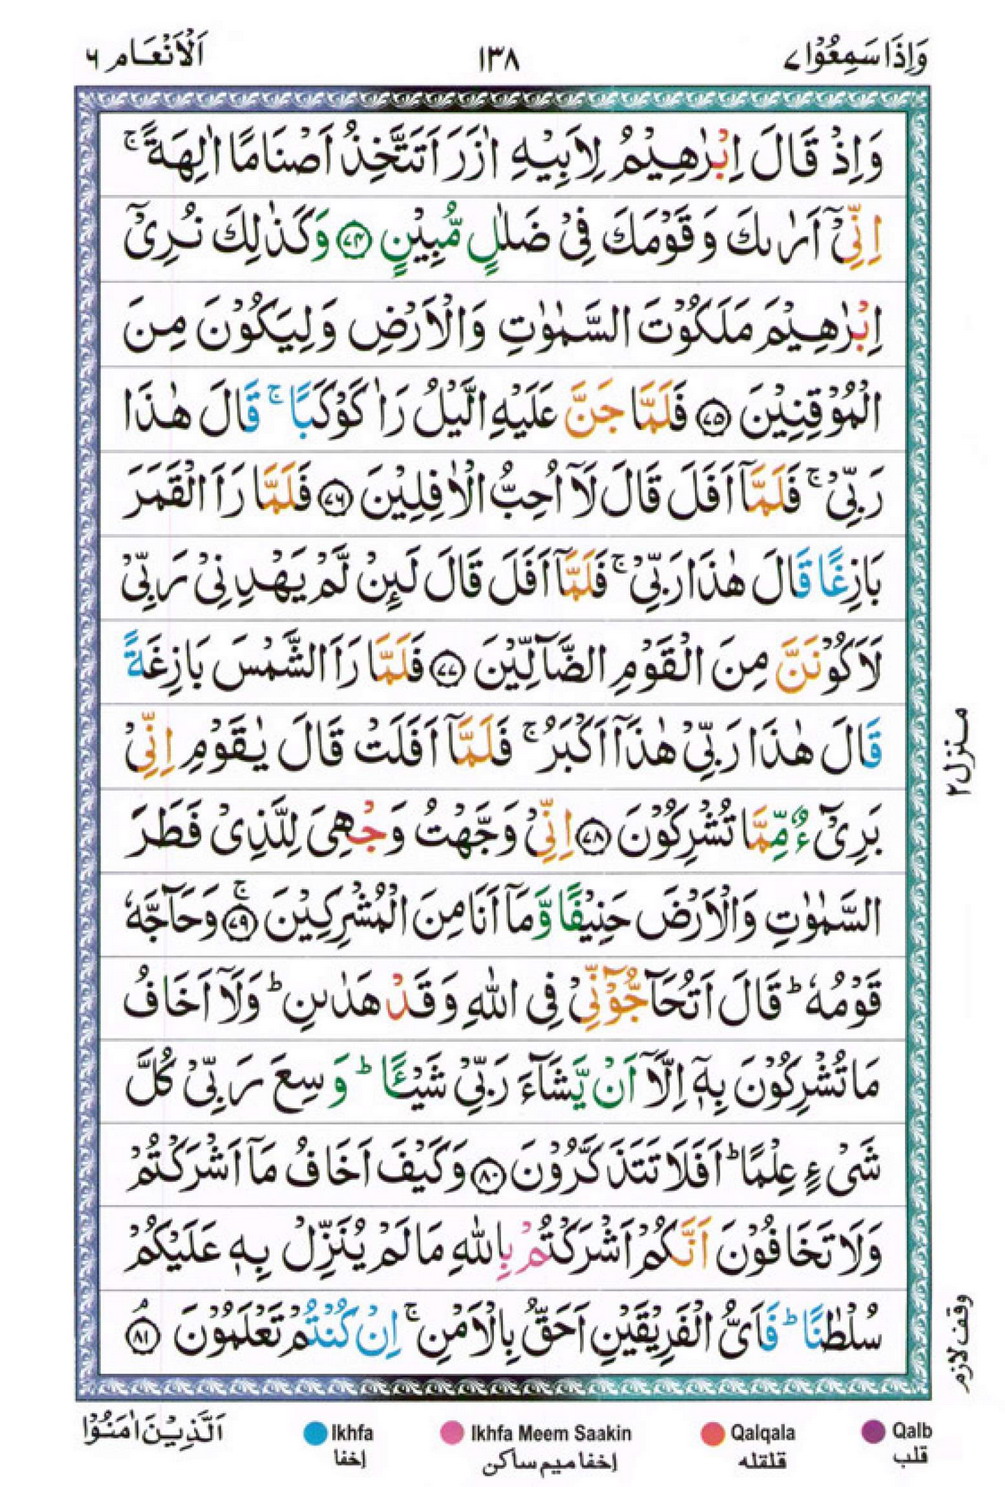 وَاِذَا سَمِعُوْا ۷ ۱۳۸ اَلْاَنْعَام ۶
وَاِذْ قَالَ اِبْرٰهِيْمُ لِاَبِيْهِ اٰزَرَ اَتَتَّخِذُ اَصْنَامًا اٰلِهَةً ۚ
اِنِّيْۤ اَرٰىكَ وَقَوْمَكَ فِيْ ضَلٰلٍ مُّبِيْنٍ ﴿۷۴﴾ وَكَذٰلِكَ نُرِيْۤ
اِبْرٰهِيْمَ مَلَكُوْتَ السَّمٰوٰتِ وَالْاَرْضِ وَلِيَكُوْنَ مِنَ
الْمُوْقِنِيْنَ ﴿۷۵﴾ فَلَمَّا جَنَّ عَلَيْهِ الَّيْلُ رَاٰ كَوْكَبًا ۚ قَالَ هٰذَا
رَبِّيْ ۚ فَلَمَّاۤ اَفَلَ قَالَ لَاۤ اُحِبُّ الْاٰفِلِيْنَ ﴿۷۶﴾ فَلَمَّا رَاَ الْقَمَرَ
بَازِغًا قَالَ هٰذَا رَبِّيْ ۚ فَلَمَّاۤ اَفَلَ قَالَ لَئِنْ لَّمْ يَهْدِنِيْ رَبِّيْ
لَاَكُوْنَنَّ مِنَ الْقَوْمِ الضَّآلِّيْنَ ﴿۷۷﴾ فَلَمَّا رَاَ الشَّمْسَ بَازِغَةً
قَالَ هٰذَا رَبِّيْ هٰذَاۤ اَكْبَرُ ۚ فَلَمَّاۤ اَفَلَتْ قَالَ يٰقَوْمِ اِنِّيْ
بَرِيْٓءٌ مِّمَّا تُشْرِكُوْنَ ﴿۷۸﴾ اِنِّيْ وَجَّهْتُ وَجْهِيَ لِلَّذِيْ فَطَرَ
السَّمٰوٰتِ وَالْاَرْضَ حَنِيْفًا وَّمَاۤ اَنَا مِنَ الْمُشْرِكِيْنَ ۚ﴿۷۹﴾ وَحَآجَّهٗ
قَوْمُهٗ ؕ قَالَ اَتُحَآجُّوْٓنِّيْ فِي اللّٰهِ وَقَدْ هَدٰىنِ ؕ وَلَاۤ اَخَافُ
مَا تُشْرِكُوْنَ بِهٖۤ اِلَّاۤ اَنْ يَّشَآءَ رَبِّيْ شَيْـًٔا ؕ وَسِعَ رَبِّيْ كُلَّ
شَيْءٍ عِلْمًا ؕ اَفَلَا تَتَذَكَّرُوْنَ ﴿۸۰﴾ وَكَيْفَ اَخَافُ مَاۤ اَشْرَكْتُمْ
وَلَا تَخَافُوْنَ اَنَّكُمْ اَشْرَكْتُمْ بِاللّٰهِ مَا لَمْ يُنَزِّلْ بِهٖ عَلَيْكُمْ
سُلْطٰنًا ؕ فَاَيُّ الْفَرِيْقَيْنِ اَحَقُّ بِالْاَمْنِ ۚ اِنْ كُنْتُمْ تَعْلَمُوْنَ ۘ﴿۸۱﴾
منزل ۲
وقف لازم
اَلَّذِيْنَ اٰمَنُوْا
Ikhfa Ikhfa Meem Saakin Qalqala Qalb
اخفا اخفا میم ساکن قلقله قلب